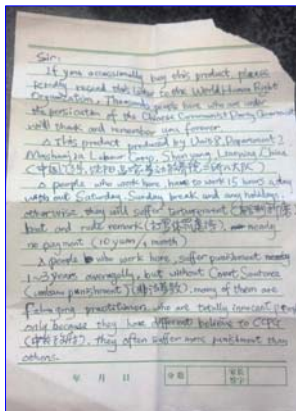 Sir:
If you occassionally buy this product, please
kindly resend this letter to the World Human Right
Organization. Thousands people here who are under
the persicution of the Chinese Communist Party Government
will thank and remember you forever.
This product produced by Unit 8, Department 2,
Masanjia Labour Camp, Shenyang, Liaoning, China
(中国,辽宁,沈阳,马三家
people who work here, have to work 15 hours a day
with out Saturday, Sunday break and any holidays,
otherwise they will suffer torturement
beat and rude remark nearly
no payment (10 yuan/1 month)
people who work here, suffer punishment nearly
1~3 years averagelly, but without Court Sentence
(unlaw punishment) many of them are
Falun gong practitioner, who are totally innocent people
only because they have different believe to CCPG
they often suffer more punishment than
others.
年 月 日